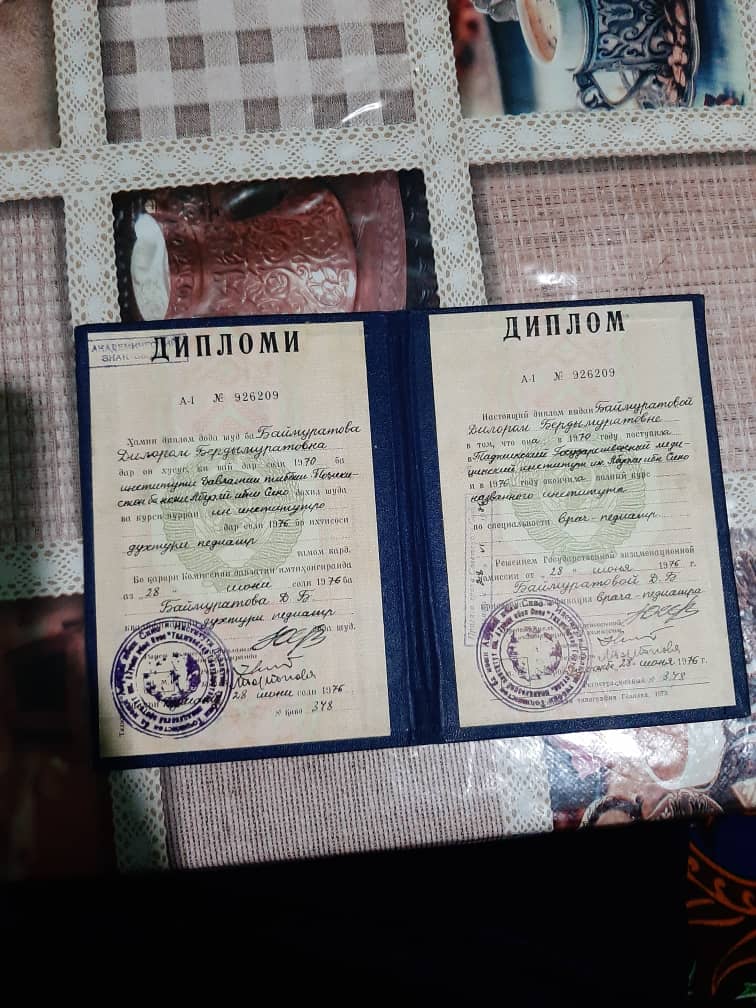 ДИПЛОМИ
А-I № 926209
Ҳамин диплом дода шуд ба Баймуратова
Дилором Бердымуратовна
дар он хусус, ки вай дар соли 1970 ба
институти давлатии тиббии Тоҷики-
стон ба номи Абӯалӣ ибни Сино дохил шуда
ва курси пурраи ин институтро
дар соли 1976 бо ихтисоси
духтури педиатр
тамом кард.
Бо қарори Комиссияи давлатии имтиҳонгиранда
аз „ 28 “ июни соли 1976 ба
Баймуратова Д. Б
духтури педиатр
дода шуд.
28 июни соли 1976.
№ қайд 348
ДИПЛОМ
А-I № 926209
Настоящий диплом выдан Баймуратовой
Дилором Бердымуратовне
в том, что она в 1970 году поступила
в Таджикский Государственный меди-
цинский институт им. Абуали ибн Сино
и в 1976 году окончила полный курс
названного института
по специальности врач-педиатр
Решением Государственной экзаменационной
комиссии от „ 28 “ июня 1976 г.
Баймуратовой Д. Б.
квалификация врача-педиатра
28 июня 1976 г.
Регистрационный № 348